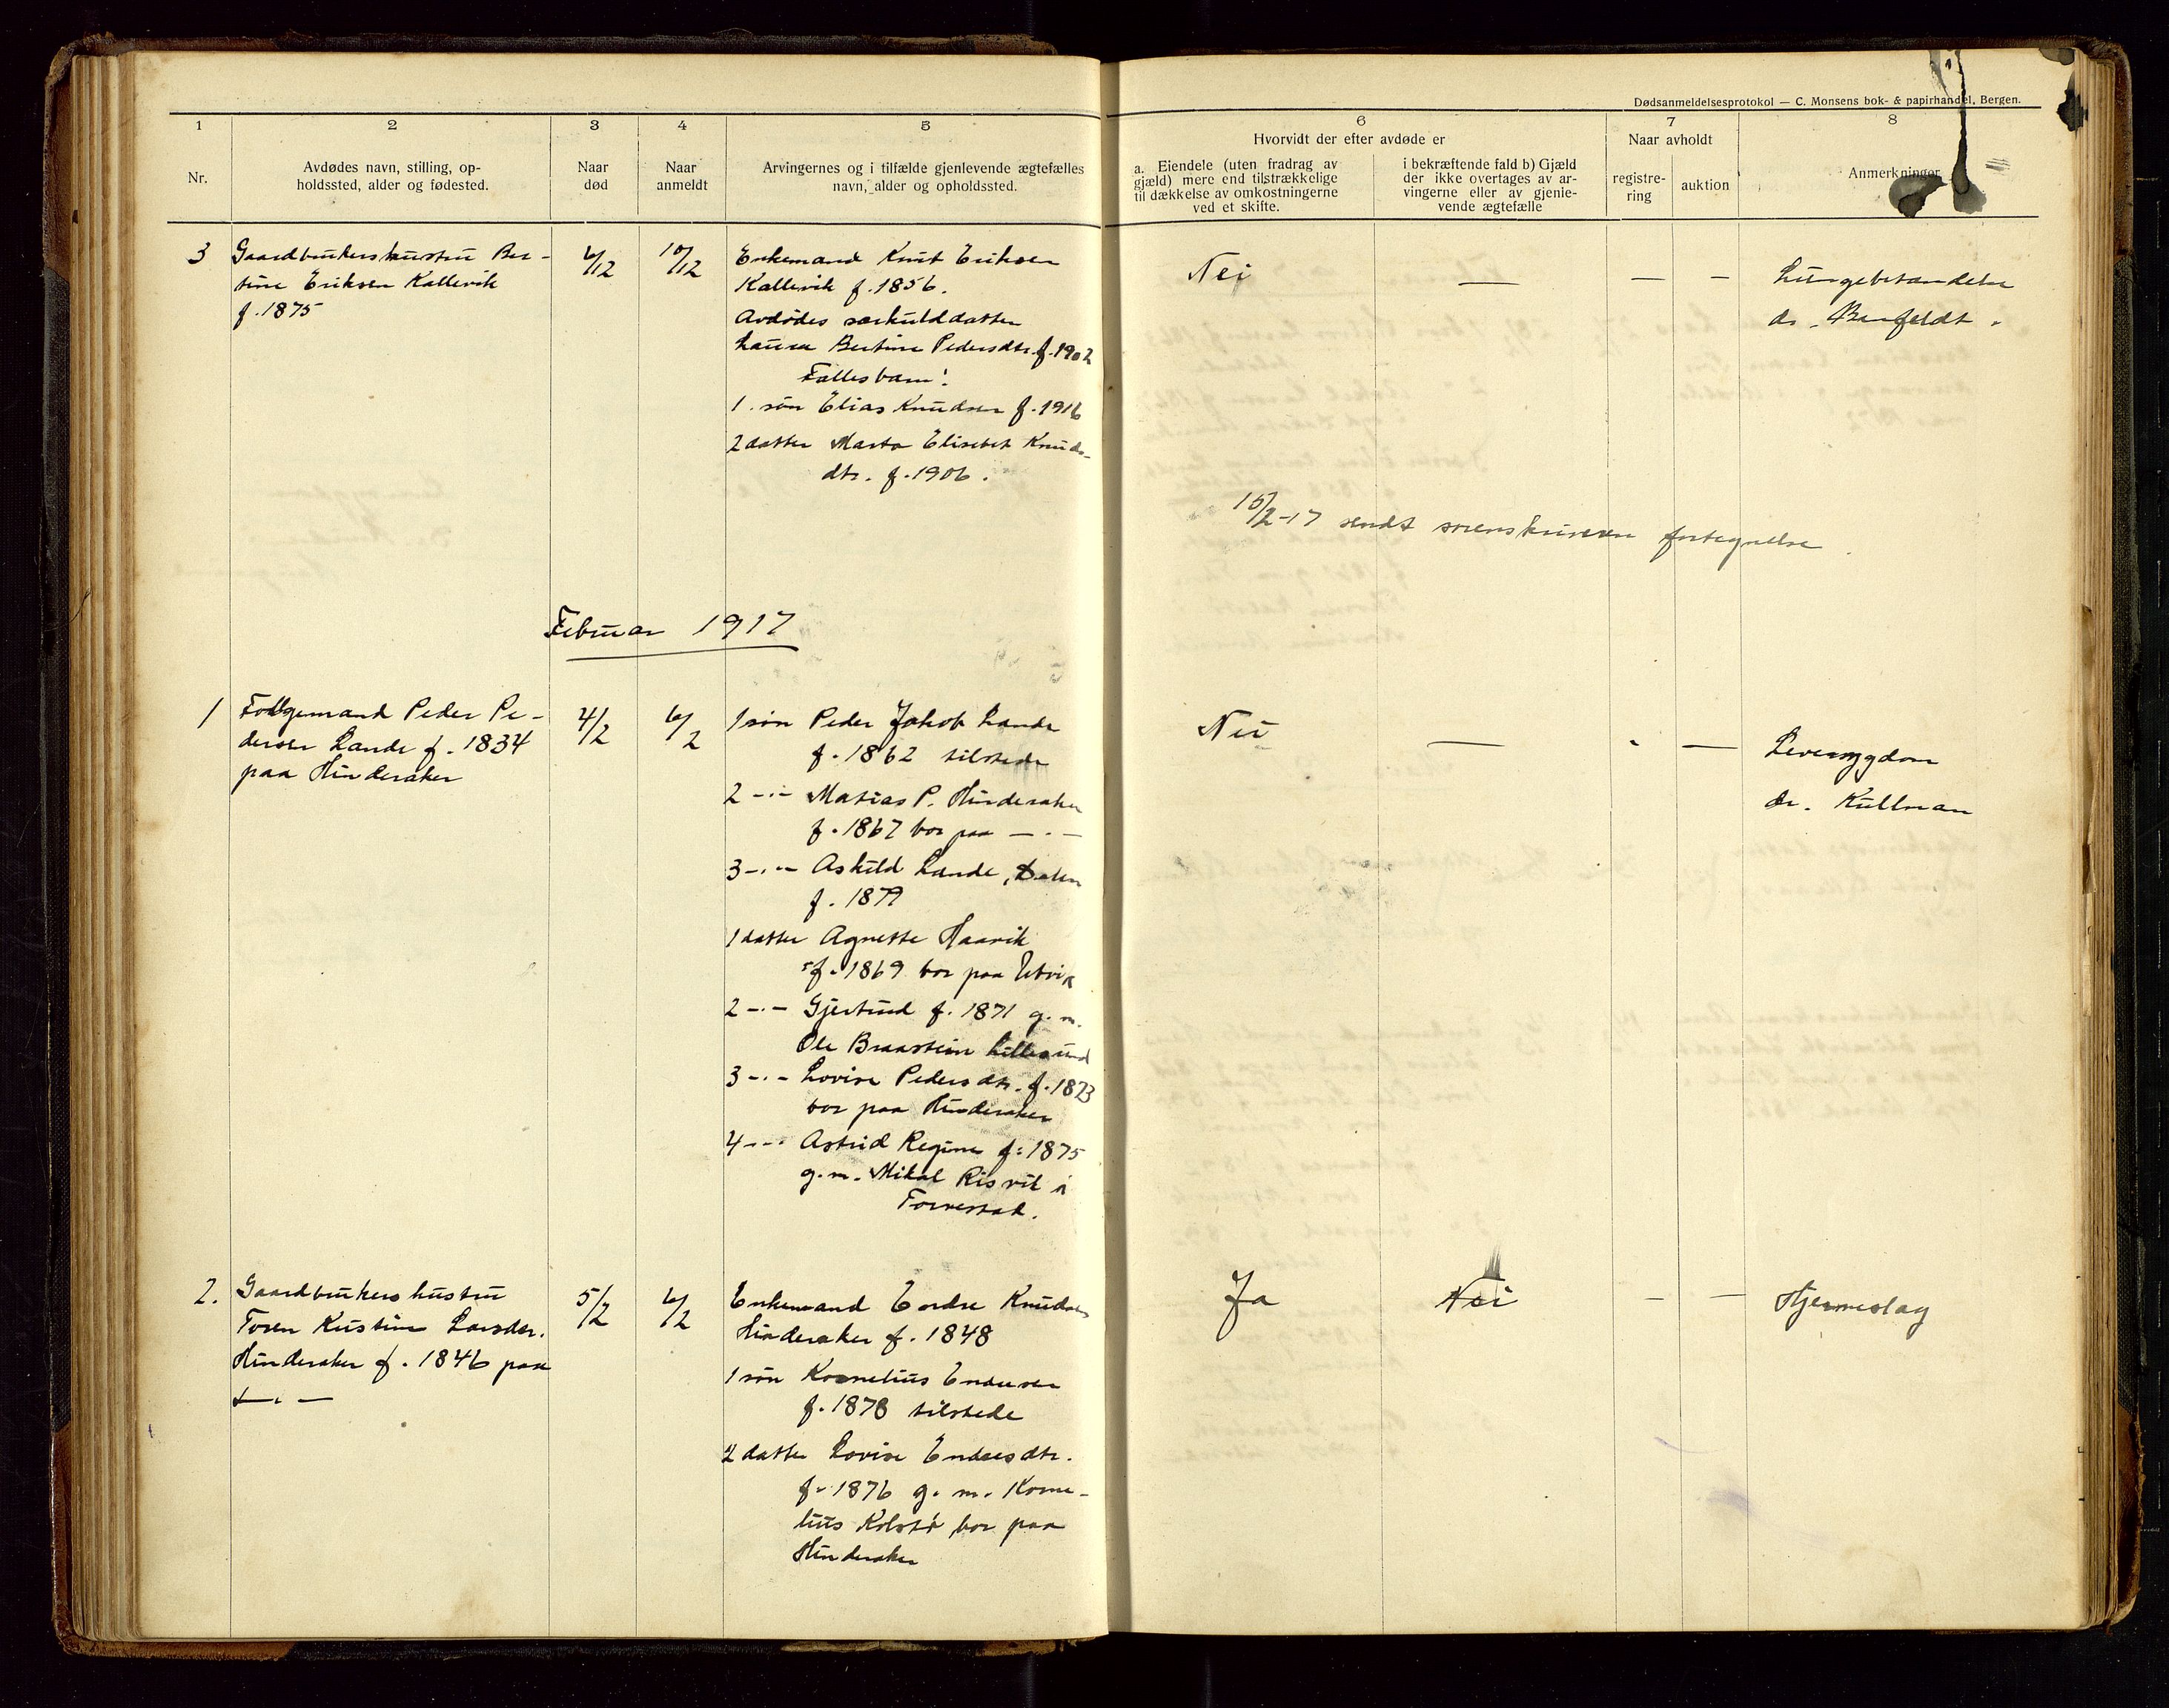 Dødsanmeldelsesprotokol — C. Monsens bok- & papirhandel, Bergen.
1
2
3
4
5
6
7
8
Nr.
Avdødes navn, stilling, op-
holdssted, alder og fødested.
Naar
død
Naar
anmeldt
Arvingernes og i tilfælde gjenlevende ægtefælles
navn, alder og opholdssted.
Hvorvidt der efter avdøde er
a. Eiendele (uten fradrag av
gjæld) mere end tilstrækkelige
til dækkelse av omkostningerne
ved et skifte.
i bekræftende fald b) Gjæld
der ikke overtages av ar-
vingerne eller av gjenle-
vende ægtefælle
Naar avholdt
registre-
ring
auktion
Anmerkninger
3
Gaardbrukershustru Ber-
tine Eriksen Kallevik
f. 1875
6/12
10/12
Enkemand Knut Eriksen
Kallevik f. 1856.
Avdødes særkulddatter
Laura Bertine Pedersdtr. f. 1902
Fællesbarn:
1. søn Elias Knudsen f. 1916
2 datter Marta Elisebet Knuds-
dtr. f. 1906.
Nei
—
— —
Lungebetændelse
dr.
15/2-17 sendt sorenskriveren fortegnelse.
Februar 1917
1
Folgemand Peder Pe-
dersen Lande f. 1834
paa Hinderaker
4/2
6/2
1 søn Peder Jakob Lande
f. 1862 tilstede
2 -"- Matias P. Hinderaker
f. 1867 bor paa -"-
3 -"- Askild Lande,
f. 1879
1 datter Agnette Haavik
f. 1869 bor paa Utvik
2 -"- Gjertrud f. 1871 g. m.
Ole Braastein Lillesund
3 -"- Lovise Pedersdtr. f. 1873
bor paa Hinderaker
4 -"- Astrid Regine f. 1875
g. m. Mikal Risvik i
Torvestad.
Nei
—
- —
Leversygdom
dr. Kullman
2.
Gaardbrukershustru
Toren Kristine Larsdtr.
Hinderaker f. 1846 paa
-"-
5/2
6/2
Enkemand Endre Knudsen
Hinderaker f. 1848
1 søn Kornelius Endresen
f. 1878 tilstede
2 datter Lovise Endresdtr.
f. 1876 g. m. Korne-
lius Kolstø bor paa
Hinderaker
Ja
Nei
— —
Hjerneslag